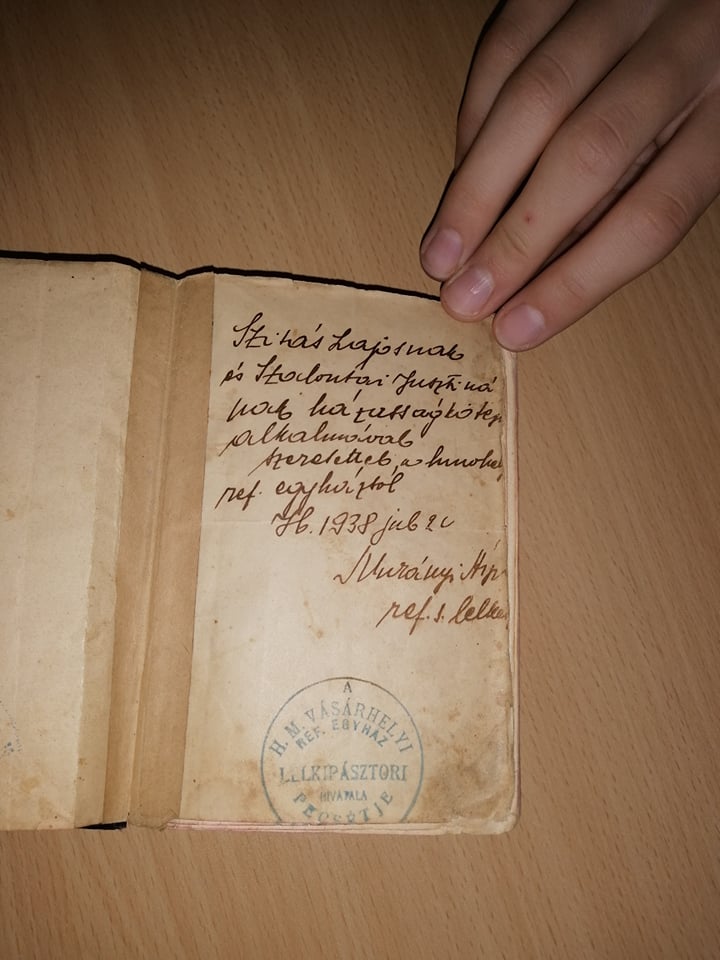 Szitás Lajosnak
és Szalontai Jusztiná
nak házasságkötés
alkalmával
szeretettel a hmvhelyi
ref. egyháztól
1938 jul
Murányi
ref. s. lelkész
A
H. M. VÁSÁRHELYI
REF. EGYHÁZ
LELKIPÁSZTORI
HIVATALA
PECSÉTJE